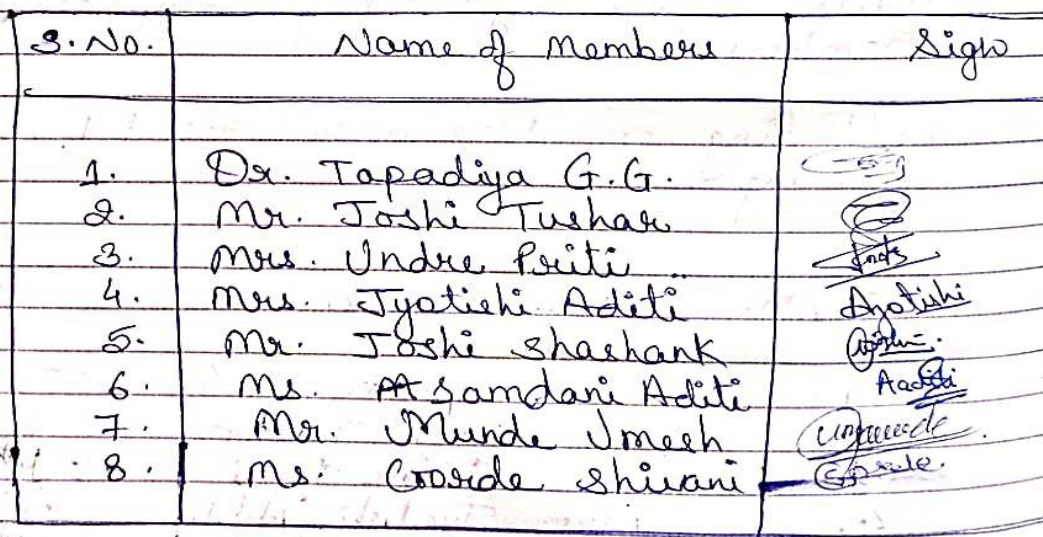 S.No. Name of Members Sign
1. Dr. Tapadiya G.G.
2. Mr. Joshi Tushar
3. Mrs. Undre Priti
4. Mrs. Jyotishi Aditi Jyotishi
5. Mr. Joshi Shashank
6. Ms. Asamdani Aditi Aaditi
7. Mr. Munde Umesh
8. Ms. Gorde Shivani